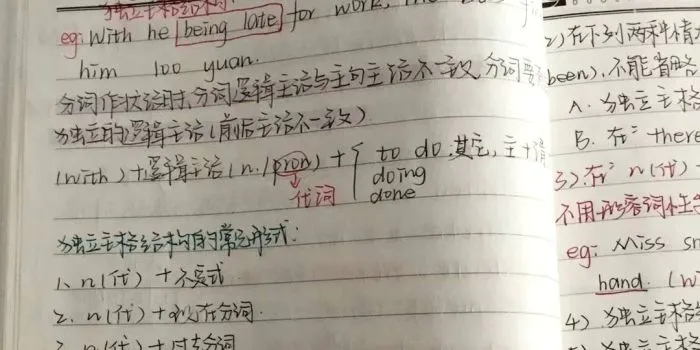 独立主格结构:
eg: With he being late for work, the
him 100 yuan.
分词作状语时,分词逻辑主语与主句主语不一致,分词要
独立的逻辑主语(前后主语不一致)
(with)+逻辑主语(n./pron)+{ to do.其它,主+谓
doing
代词 done
独立主格结构的常见形式:
1、n(代)+不定式
2、n(代)+现在分词.
3、n(代)+过去分词
2)在下列两种情
been),不能省略
A. 独立主格
B. 在 there
3)在 n(代)
不用形容词性
eg: Miss
hand. (w
4) 独立主格
5) 独立主格